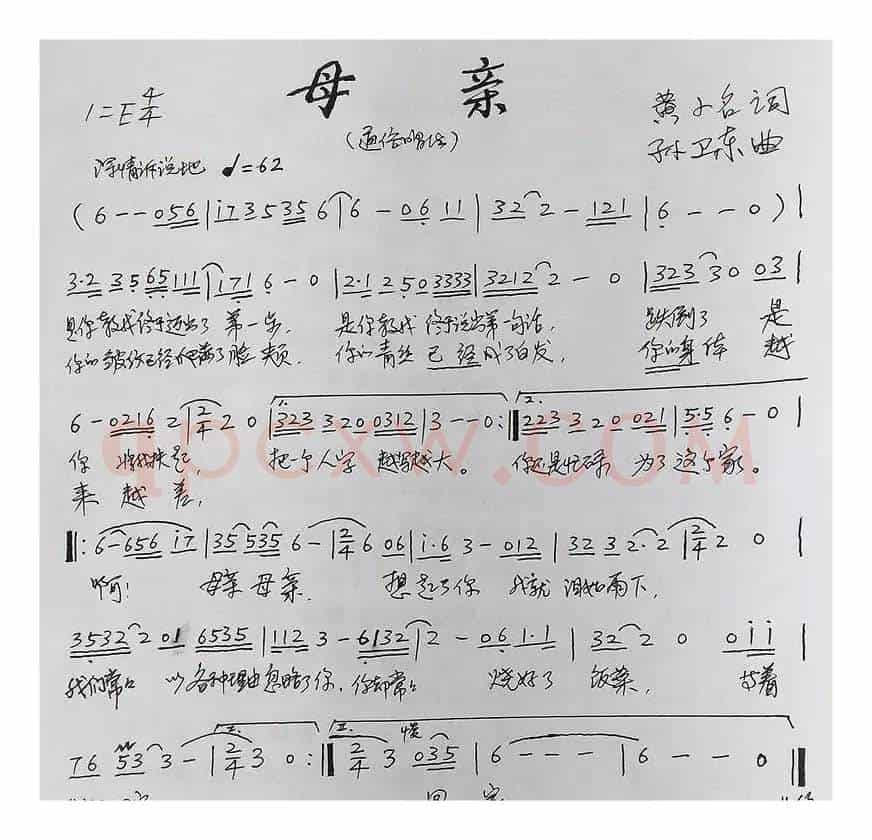 母 亲
1=E 4/4
(通俗唱法)
黄小名词
孙卫东曲
深情诉说地 ♩=62
(6 - - 056 | i7 3 5 35 6 | 6 - 06 11 | 32 2 - 121 | 6 - - 0) |
3·2 35 65 111 | 171 6 - 0 | 2·1 2 5 0 3333 | 3212 2 - 0 | 323 30 03 |
是你教我终于迈出了 第一步, 是你教我 终于说出第一句话, 跌倒了 是
你的皱纹已经爬满了脸 颊, 你的青丝 已经成了白发, 你的身体 越
6 - 0216 2 | 2/4 2 0 | 1. 323 320 0312 | 3 - - 0 :‖ 2. 223 32 0 021 | 5·5 6 - 0 |
你 将我扶起, 把个人字 越写越大。 你还是忙碌 为了这个家。
来 越 差,
‖: 6 - 656 i7 | 35 535 6 - | 2/4 6 06 | i·6 3 - 012 | 32 3 2· 2 | 2/4 2 0 |
啊! 母亲 母亲, 想起了你 我就 泪如雨下,
3532 2 01 6535 | 112 3 - 6132 | 2 - 06 1·1 | 32 2 0 0ii |
我们常常 以各种理由忽略了你, 你却常常 烧好了 饭菜, 等着
76 53 3 - | 2/4 3 0 :‖ 2/4 3 035 | 6 - - - | 6 - - 0 ‖
慢
回 家
qpcxw.com